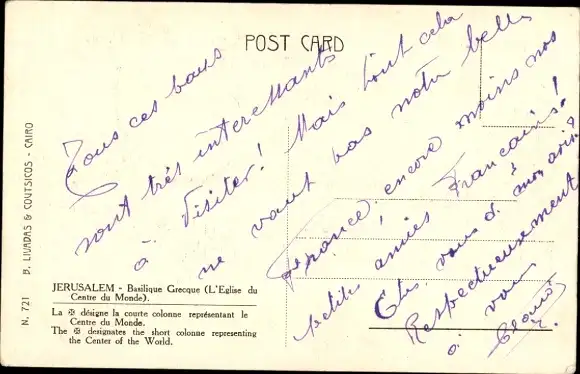 POST CARD
Tous ces pays
sont très interessants
à Visiter! Mais tout cela
ne vaut pas notre belle
France, encore moins nos
petites amies Françaises!
Etes vous d' mon avis?
Respectueusement
à vous
N. 721 B. LIVADAS & COUTSICOS - CAIRO
JERUSALEM - Basilique Grecque (L'Eglise du
Centre du Monde).
La ✠ désigne la courte colonne représentant le
Centre du Monde.
The ✠ designates the short colonne representing
the Center of the World.